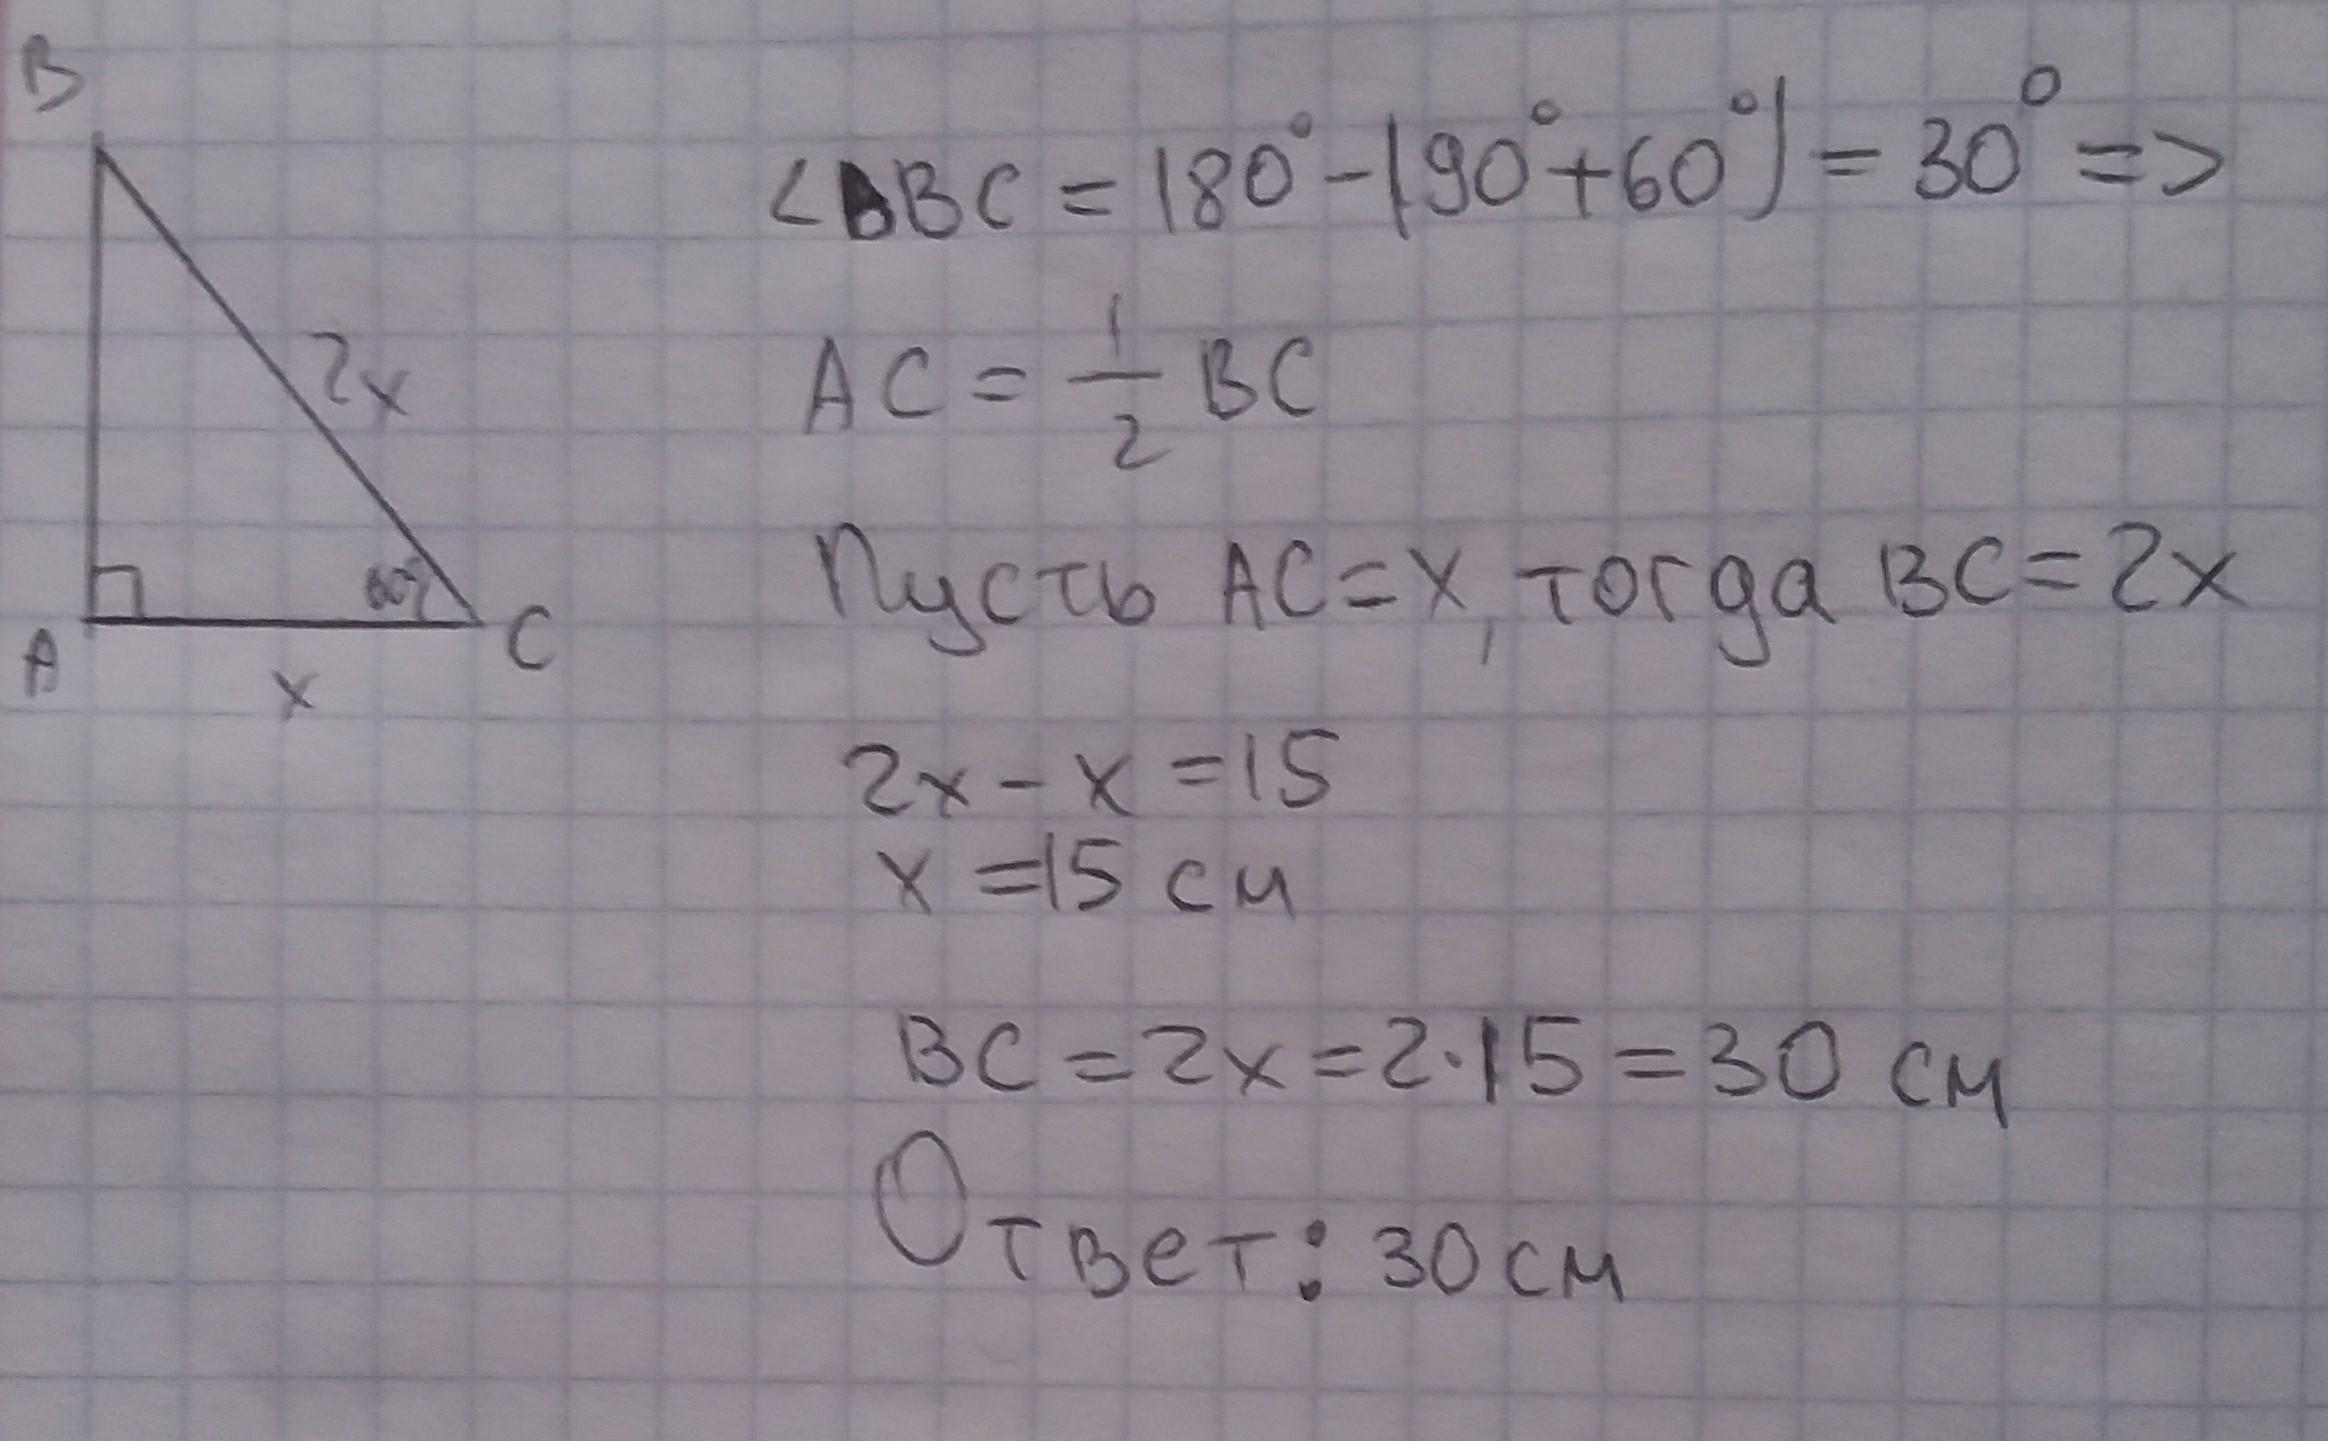 B
2x
60°
A
C
x
∠ABC = 180° - (90° + 60°) = 30° =>
AC = 1/2 BC
Пусть AC = x, тогда BC = 2x
2x - x = 15
x = 15 см
BC = 2x = 2·15 = 30 см
Ответ: 30 см